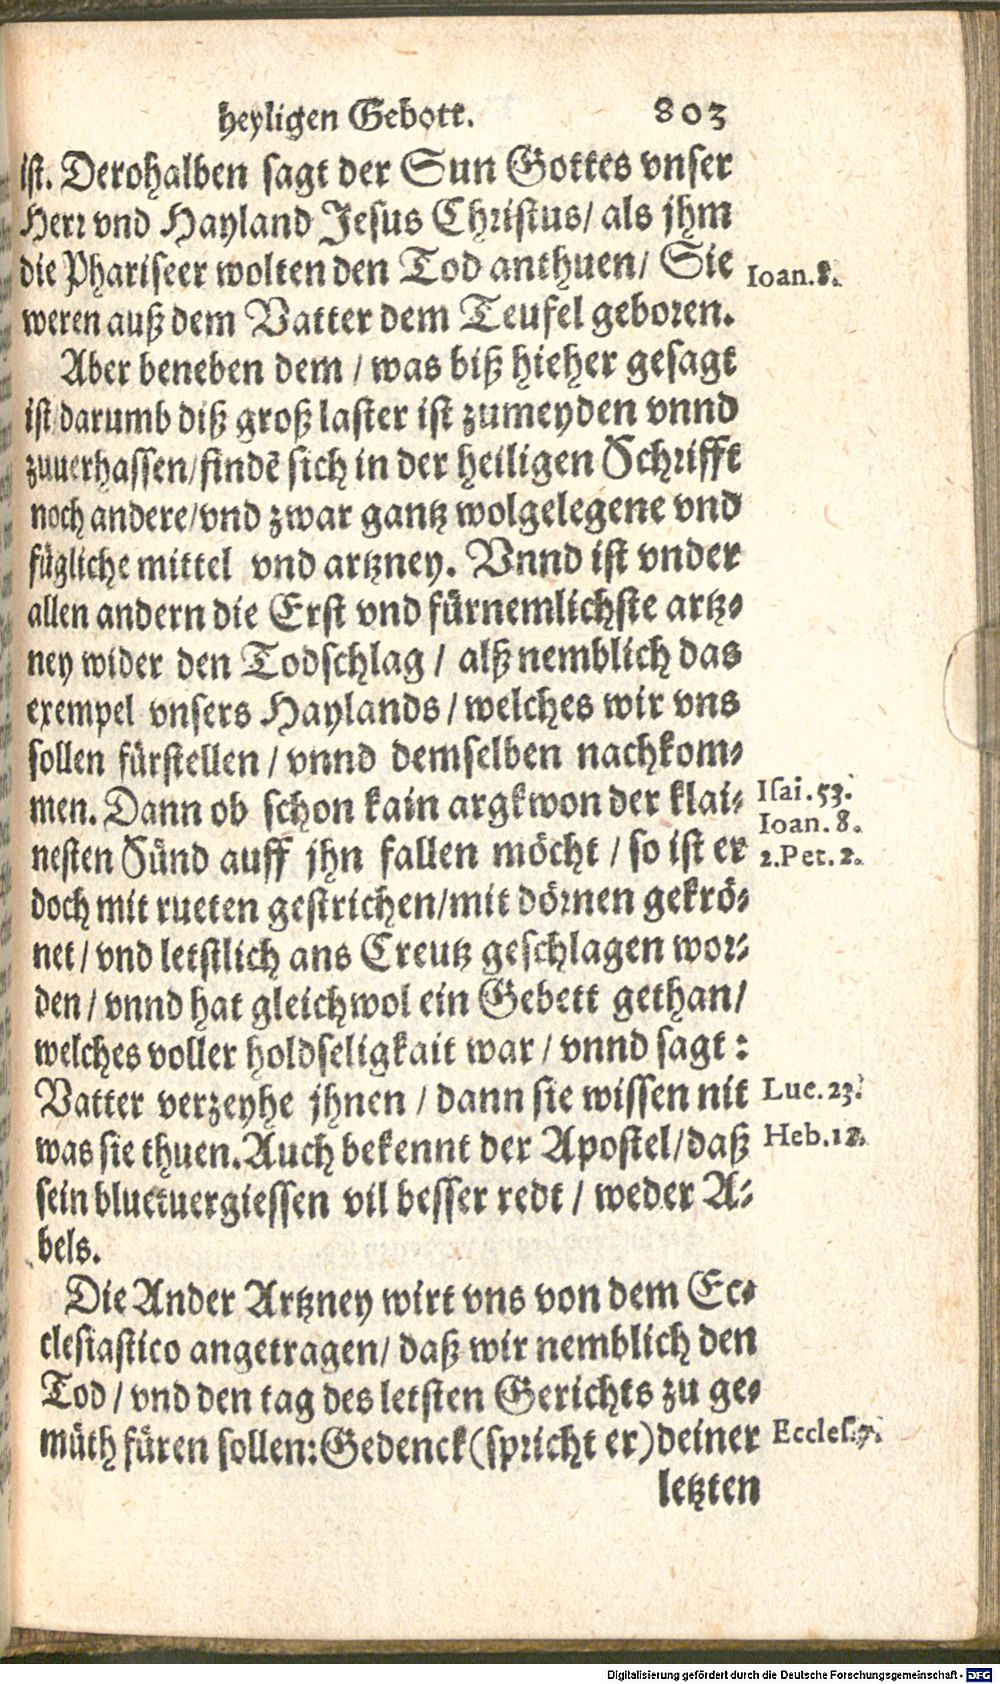 heyligen Gebott. 803
ist. Derohalben sagt der Sun Gottes vnser
Herr vnd Hayland Jesus Christus/ als jhm
die Phariseer wolten den Tod anthuen/ Sie Ioan.8.
weren auß dem Vatter dem Teufel geboren.
Aber beneben dem / was biß hieher gesagt
ist/darumb diß groß laster ist zumeyden vnnd
zuuerhassen/findẽ sich in der heiligen Schrifft
noch andere/vnd zwar gantz wolgelegene vnd
fügliche mittel vnd artzney. Vnnd ist vnder
allen andern die Erst vnd fürnemlichste artz-
ney wider den Todschlag / alß nemblich das
exempel vnsers Haylands / welches wir vns
sollen fürstellen / vnnd demselben nachkom-
men. Dann ob schon kain argkwon der klai- Isai.53.
Ioan. 8.
nesten Sünd auff jhn fallen möcht / so ist er 2.Pet.2.
doch mit rueten gestrichen/mit dörnen gekrö-
net / vnd letstlich ans Creutz geschlagen wor-
den / vnnd hat gleichwol ein Gebett gethan/
welches voller holdseligkait war / vnnd sagt :
Vatter verzeyhe jhnen / dann sie wissen nit Luc.23.
was sie thuen. Auch bekennt der Apostel/daß Heb.12.
sein bluetuergiessen vil besser redt / weder A-
bels.
Die Ander Artzney wirt vns von dem Ec-
clesiastico angetragen/ daß wir nemblich den
Tod / vnd den tag des letsten Gerichts zu ge-
müth füren sollen: Gedenck (spricht er) deiner Eccles.7.
letzten
Digitalisierung gefördert durch die Deutsche Forschungsgemeinschaft - DFG